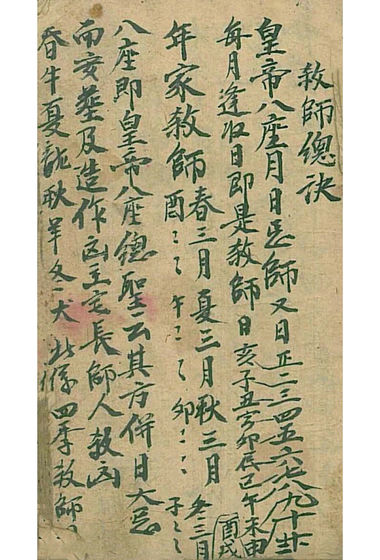 教師總訣
皇帝八座月日忌師又日正二三四五六七八九十十一十二
每月逢收日即是教師日亥子丑寅卯辰巳午未申酉戌
年家教師春三月夏三月秋三月冬三月
酉〻〻午〻〻卯〻〻子〻〻
八座即皇帝八座總聖云其方併日大忌
安葬及造作凶主宅長師人教凶
春牛夏龍秋羊冬犬此係四季教師